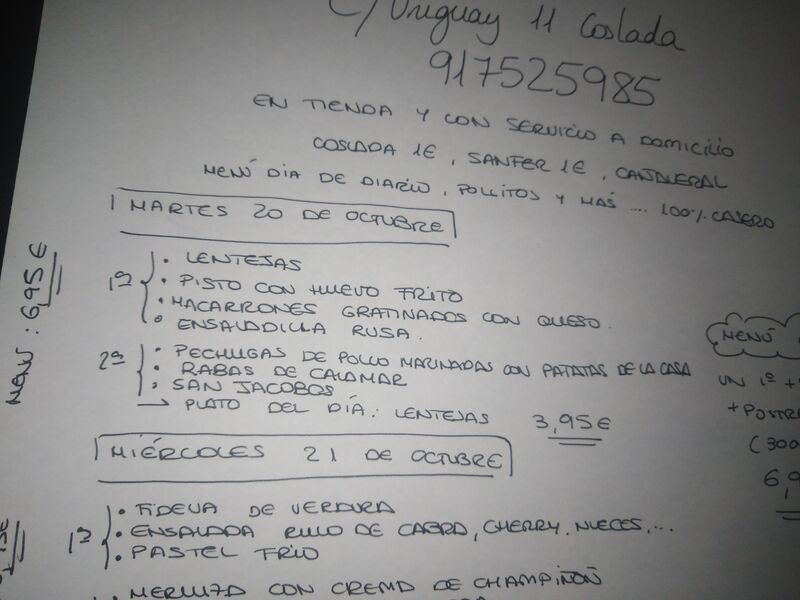 C/Uruguay 11 Coslada
917525985
EN TIENDA Y CON SERVICIO A DOMICILIO
COSLADA 1€, SANFER 1€, CAÑAVERAL
MENÚ DÍA DE DIARIO, POLLITOS Y MAS .... 100% CASERO
MARTES 20 DE OCTUBRE
MENÚ: 6,95€
1º
· LENTEJAS
· PISTO CON HUEVO FRITO
· MACARRONES GRATINADOS CON QUESO.
· ENSALADILLA RUSA.
2º
· PECHUGAS DE POLLO MARINADAS CON PATATAS DE LA CASA
· RABAS DE CALAMAR
· SAN JACOBOS
→ PLATO DEL DÍA: LENTEJAS 3,95€
MENÚ
UN 1º +
+ POSTR
(300
6,9
MIÉRCOLES 21 DE OCTUBRE
1º
· FIDEUA DE VERDURA
· ENSALADA RULO DE CABRA, CHERRY, NUECES,...
· PASTEL FRIO
· MERLUZA CON CREMA DE CHAMPIÑON